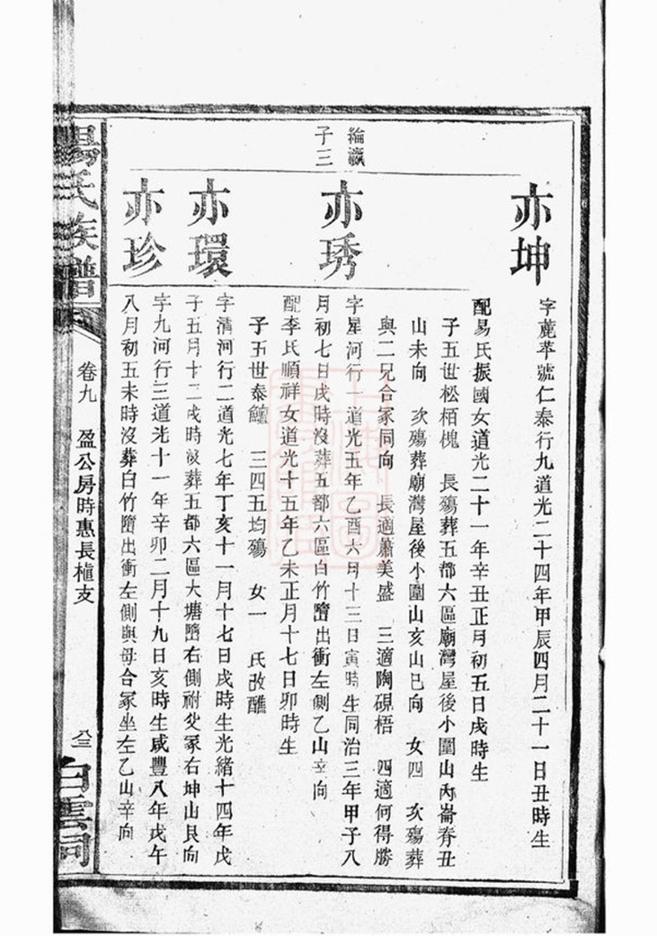 亦坤
字麓苹號仁泰行九道光二十四年甲辰四月二十一日丑時生
配易氏振國女道光二十一年辛丑正月初五日戌時生
子五世松栢槐 長殤葬五都六區廟灣屋後小圍山丙崙脊丑
山未向 次殤葬廟灣屋後小圍山亥山巳向 女四 次殤葬
與二兄合冢同向 長適蕭美盛 三適陶硯梧 四適何得勝
綸瀛
子三
亦琇
字星河行一道光五年乙酉六月十三日寅時生同治三年甲子八
月初七日戌時沒葬五都六區白竹隮出衝左側乙山辛向
配李氏順祥女道光十五年乙未正月十七日卯時生
子五世泰 三四五均殤 女一 氏改醮
亦環
字清河行二道光七年丁亥十一月十七日戌時生光緒十四年戊
子五月十二戌時沒葬五都六區大塘隮右側祔父冢右坤山艮向
亦珍
字九河行三道光十一年辛卯二月十九日亥時生咸豐八年戊午
八月初五未時沒葬白竹隮出衝左側與母合冢坐左乙山辛向
氏族譜
卷九 盈公房時惠長植支
八三
白雲祠